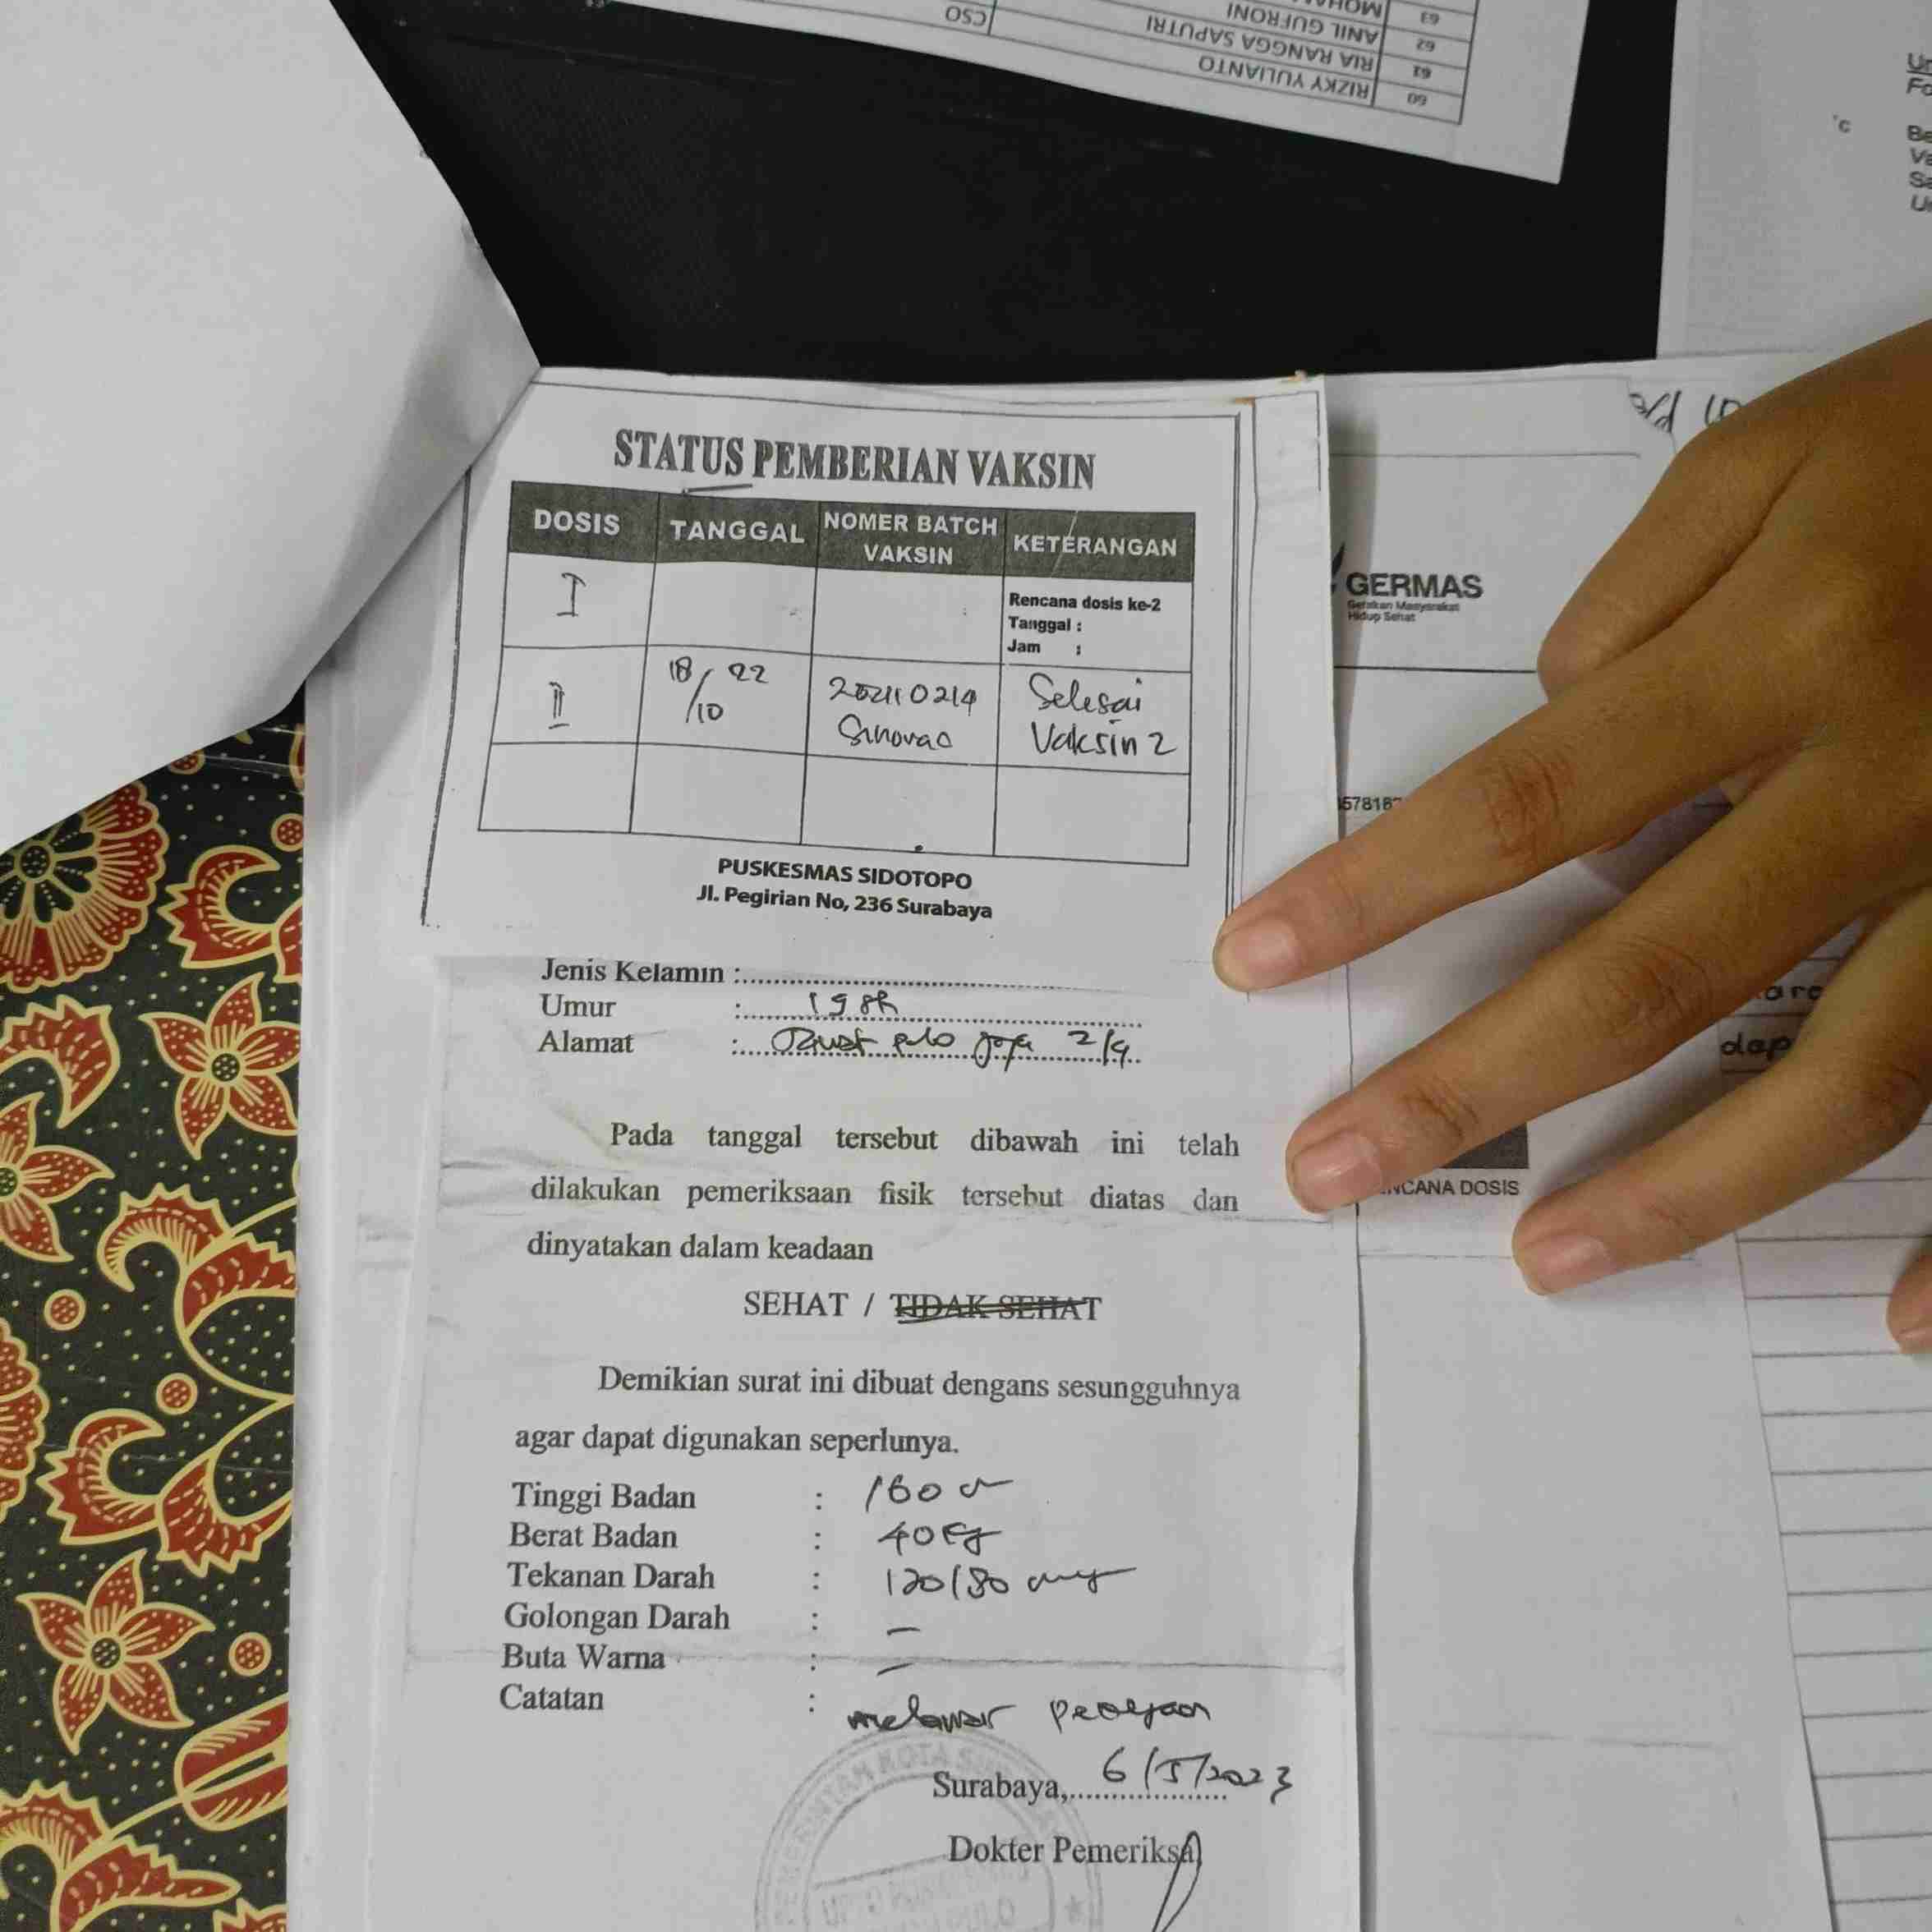 CSO
63
ANIL GUFRONI 62
RIA RANGGA SAPUTRI 61
RIZKY YULIANTO 60
STATUS PEMBERIAN VAKSIN
DOSIS TANGGAL NOMER BATCH VAKSIN KETERANGAN
I Rencana dosis ke-2
Tanggal :
Jam :
II 18/10 22 202110214 Selesai
Sinovac Vaksin 2
PUSKESMAS SIDOTOPO
Jl. Pegirian No, 236 Surabaya
Jenis Kelamin :
Umur : 19 th
Alamat : 2/9
Pada tanggal tersebut dibawah ini telah
dilakukan pemeriksaan fisik tersebut diatas dan
dinyatakan dalam keadaan
SEHAT / TIDAK SEHAT
Demikian surat ini dibuat dengans sesungguhnya
agar dapat digunakan seperlunya.
Tinggi Badan : 160 cm
Berat Badan : 40 Kg
Tekanan Darah : 120/80
Golongan Darah : –
Buta Warna : –
Catatan : melamar
Surabaya, 6/5/2023
Dokter Pemeriksa
GERMAS
Gerakan Masyarakat
Hidup Sehat
DOSIS